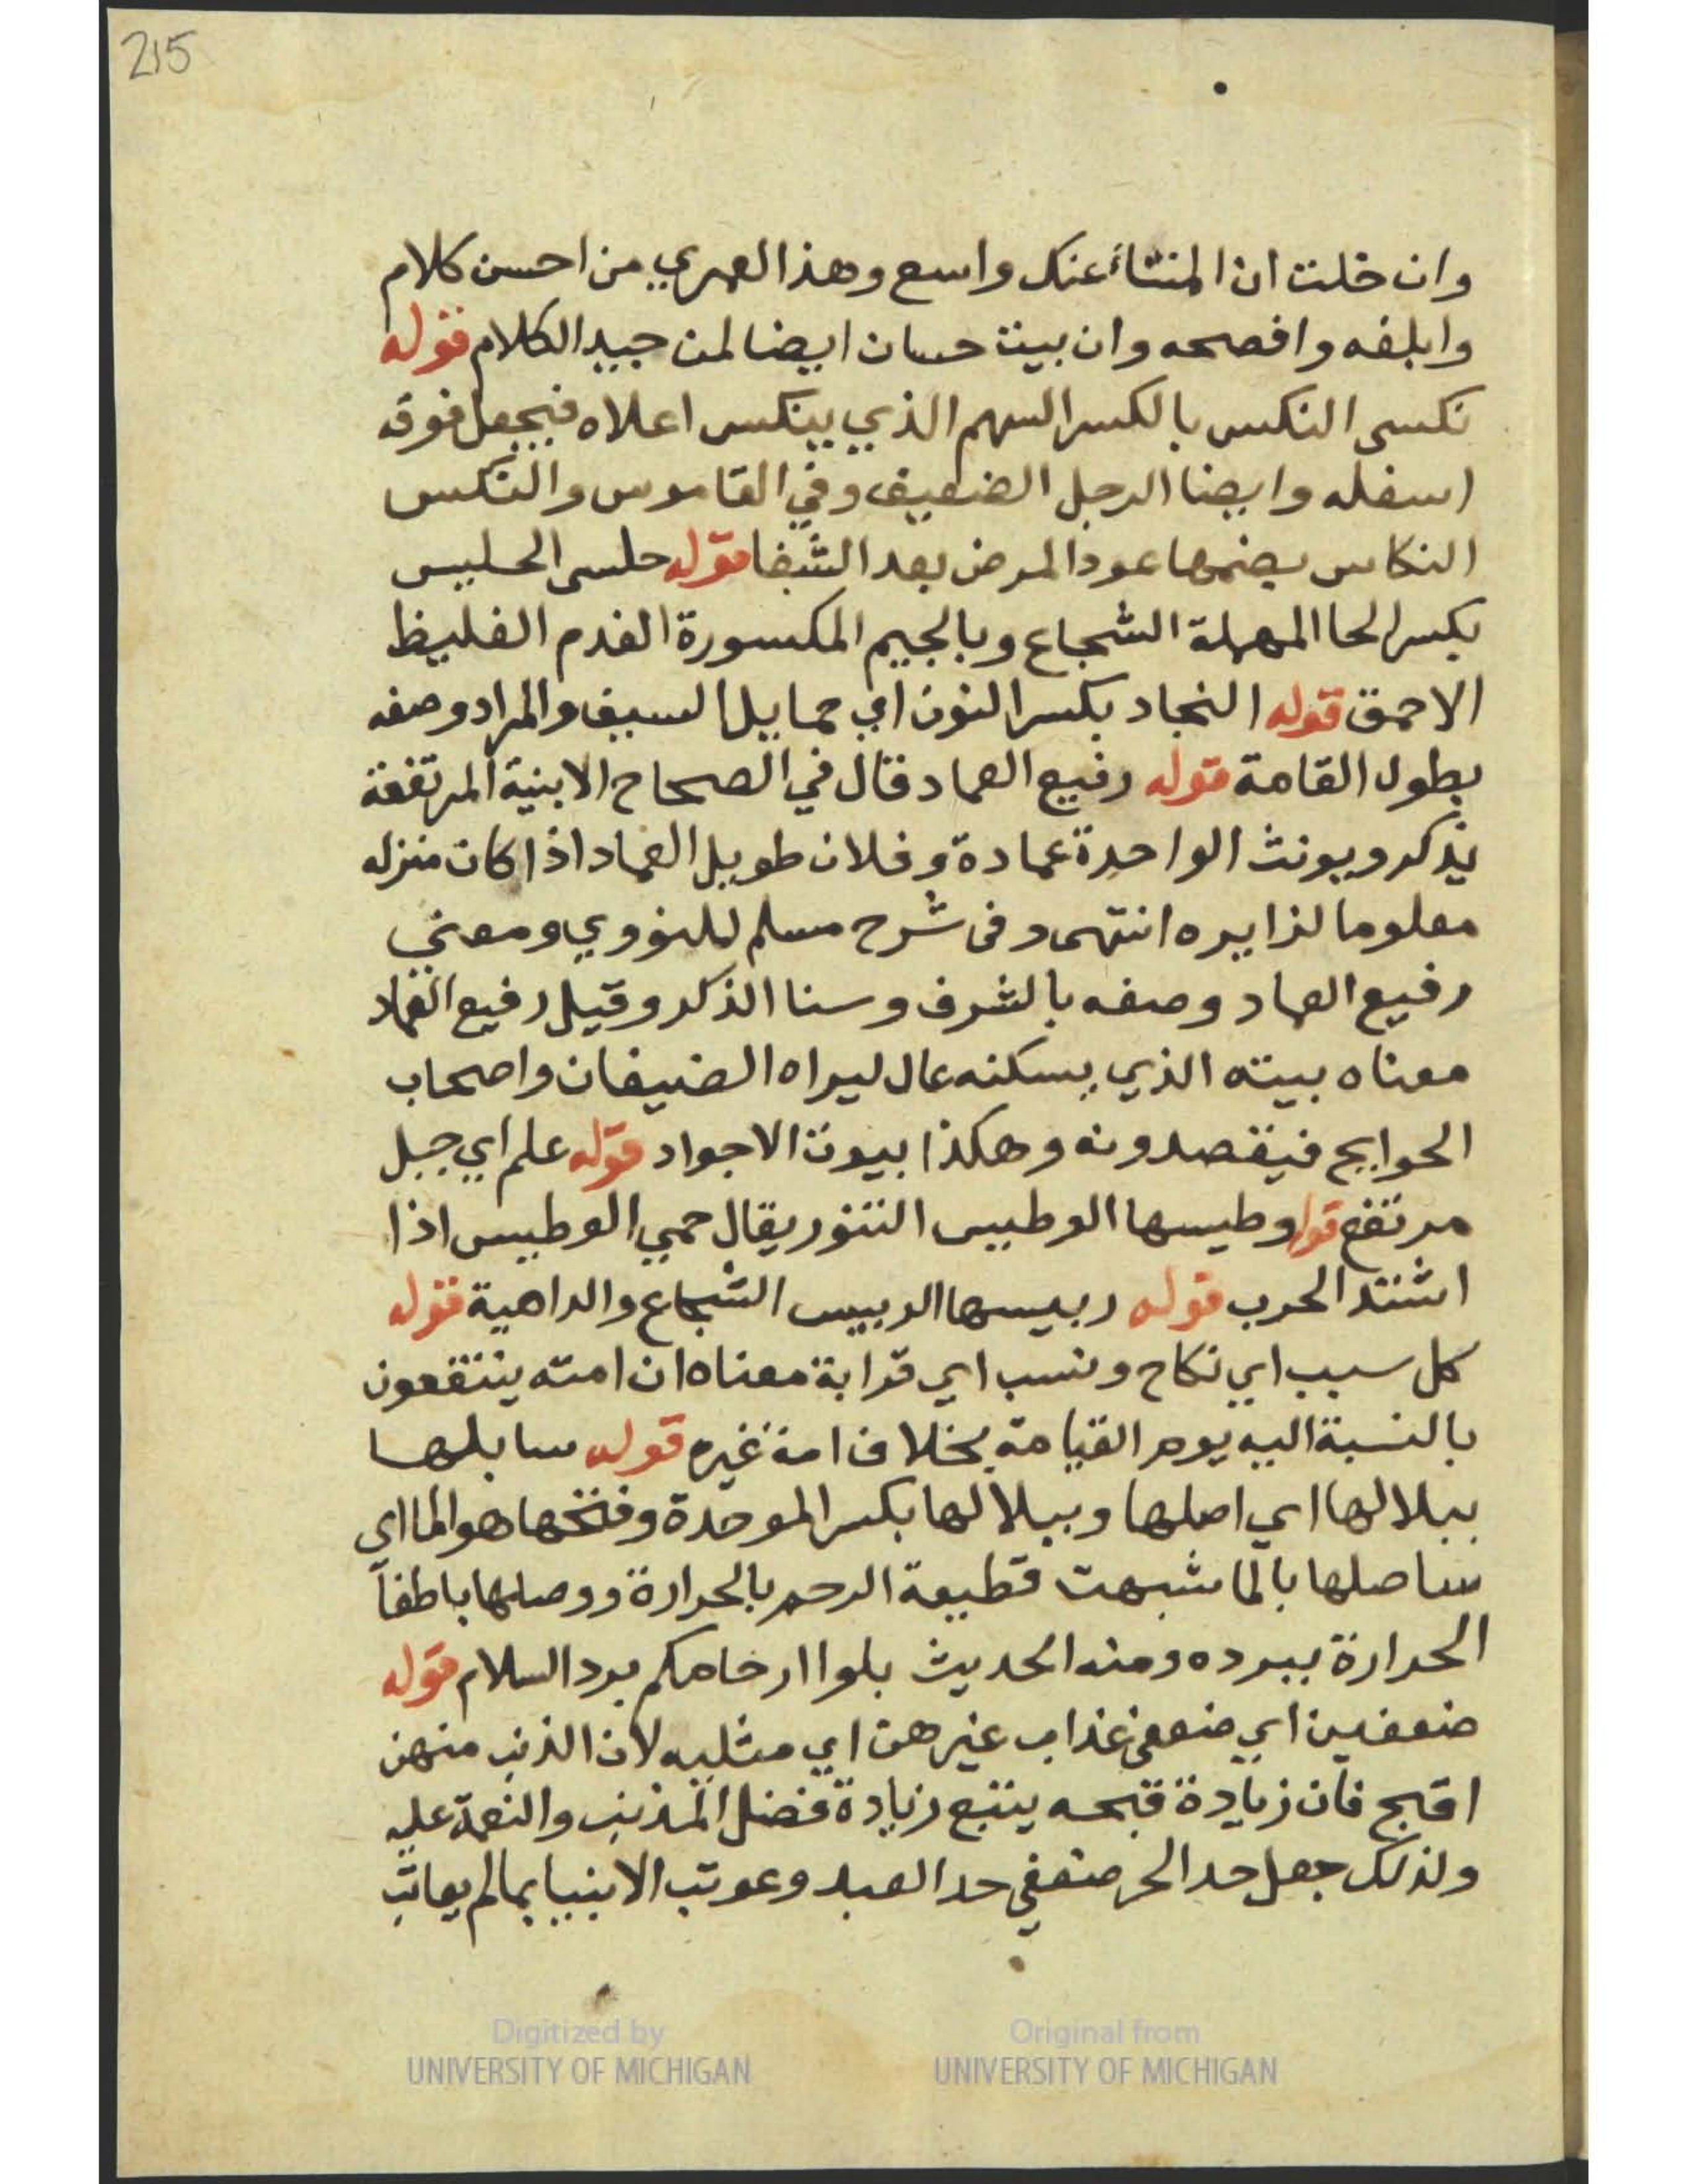 215
وان خلت ان المنتاء عنك واسع وهذا العمري من احسن كلام
وابلغه وافصحه وان بيت حسان ايضا لمن جيد الكلام قوله
نكسى النكس بالكسر السهم الذي ينكس اعلاه فيجعل فوقه
اسفله وايضا الرجل الضعيف وفي القاموس والنكس
النكاس بضمها عود المرض بعد الشفا قوله حلسى الحليس
بكسر الحا المهملة الشجاع وبالجيم المكسورة الفدم الغليظ
الاحمق قوله النجاد بكسر النون اي حمايل السيف والمراد وصفه
بطول القامة قوله رفيع العماد قال في الصحاح الابنية المرتفعة
يذكر ويونث الواحدة عمادة وفلان طويل العماد اذا كان منزله
معلوما لزايره انتهى وفى شرح مسلم للنووي ومعنى
رفيع العماد وصفه بالشرف وسنا الذكر وقيل رفيع العماد
معناه بيته الذي يسكنه عال ليراه الضيفان واصحاب
الحوايج فيقصدونه وهكذا بيوت الاجواد قوله علم اي جبل
مرتفع قوله وطيسها الوطيس التنور يقال حمي الوطيس اذا
اشتد الحرب قوله ربيسها الربيس الشجاع والداهية قوله
كل سبب اي نكاح ونسب اي قرابة معناه ان امته ينتفعون
بالنسبة اليه يوم القيامة بخلاف امة غيره قوله سابلها
ببلالها اي اصلها وببلالها بكسر الموحدة وفتحها هو الما اى
ساصلها بالما شبهت قطيعة الرحم بالحرارة ووصلها باطفآ
الحرارة ببرده ومنه الحديث بلوا ارحامكم برد السلام قوله
ضعفين اي ضعفى عذاب غيرهن اي مثليه لان الذنب منهن
اقبح فان زيادة قبحه يتبع زيادة فضل المذنب والنعمة عليه
ولذلك جعل حد الحر ضعفي حد العبد وعوتب الانبيا بما لم يعاتب
Digitized by
UNIVERSITY OF MICHIGAN
Original from
UNIVERSITY OF MICHIGAN